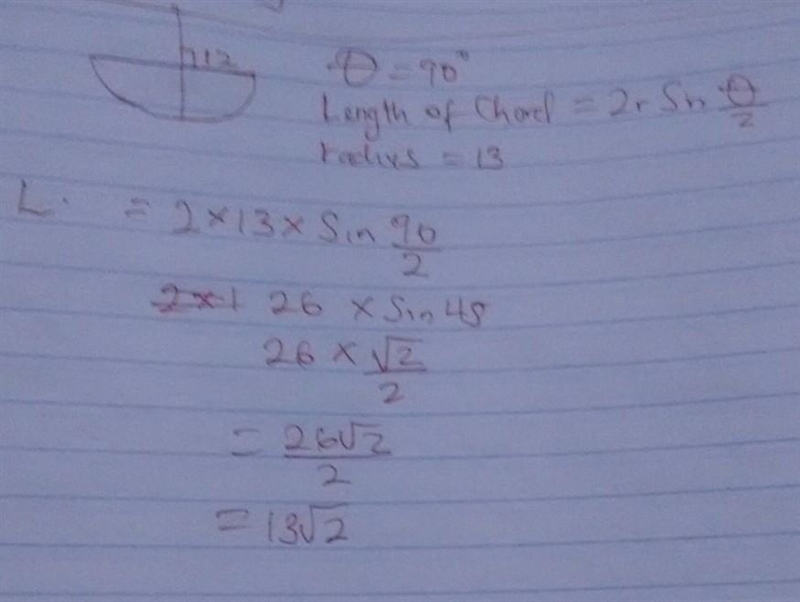 12
θ = 90°
Length of Chord = 2r Sin θ/2
radius = 13
L. = 2 × 13 × Sin 90/2
2 × 1 26 × Sin 45
26 × √2/2
= 26√2/2
= 13√2